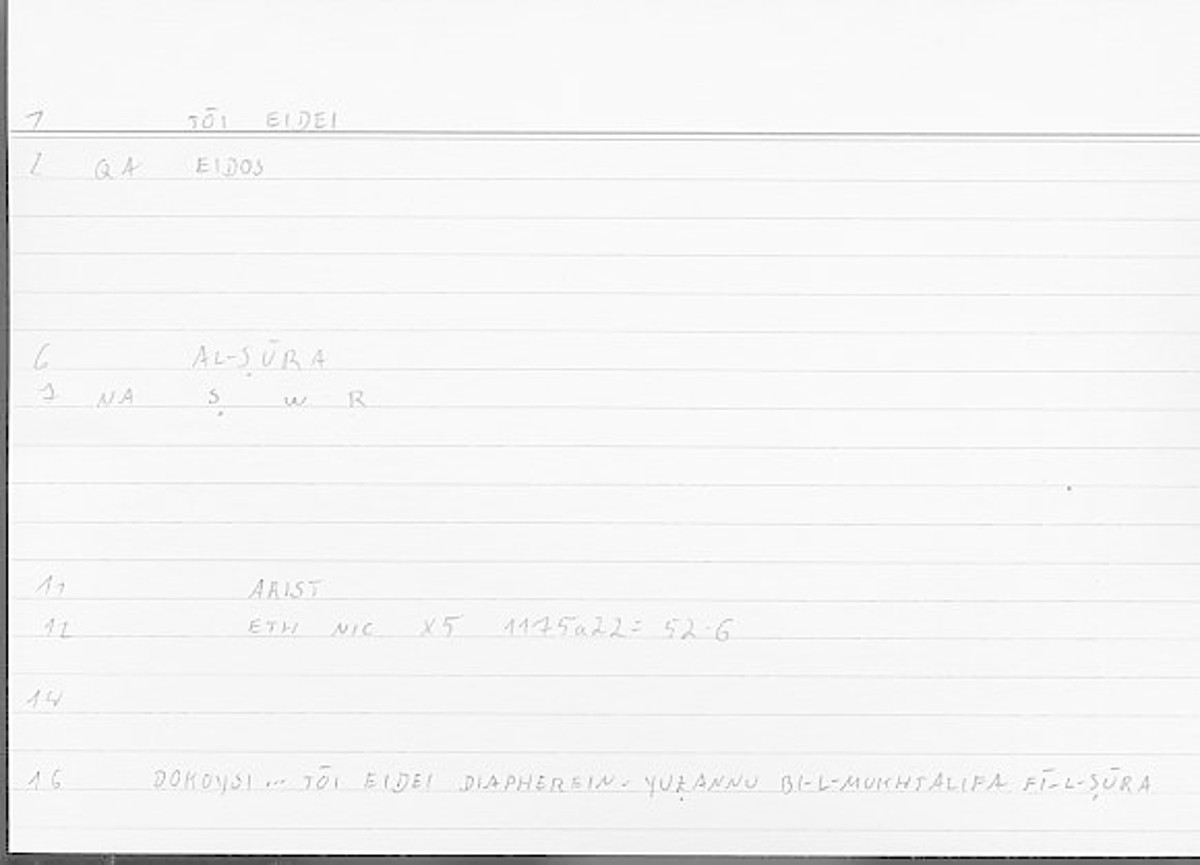 1 TŌI EIDEI
2 QA EIDOS
6 AL-ṢŪRA
7 NA Ṣ W R
11 ARIST
12 ETH NIC X5 1175a22 = 52.6
14
16 DOKOYSI... TŌI EIDEI DIAPHEREIN - YUẒANNU BI-L-MUKHTALIFA FĪ-L-ṢŪRA